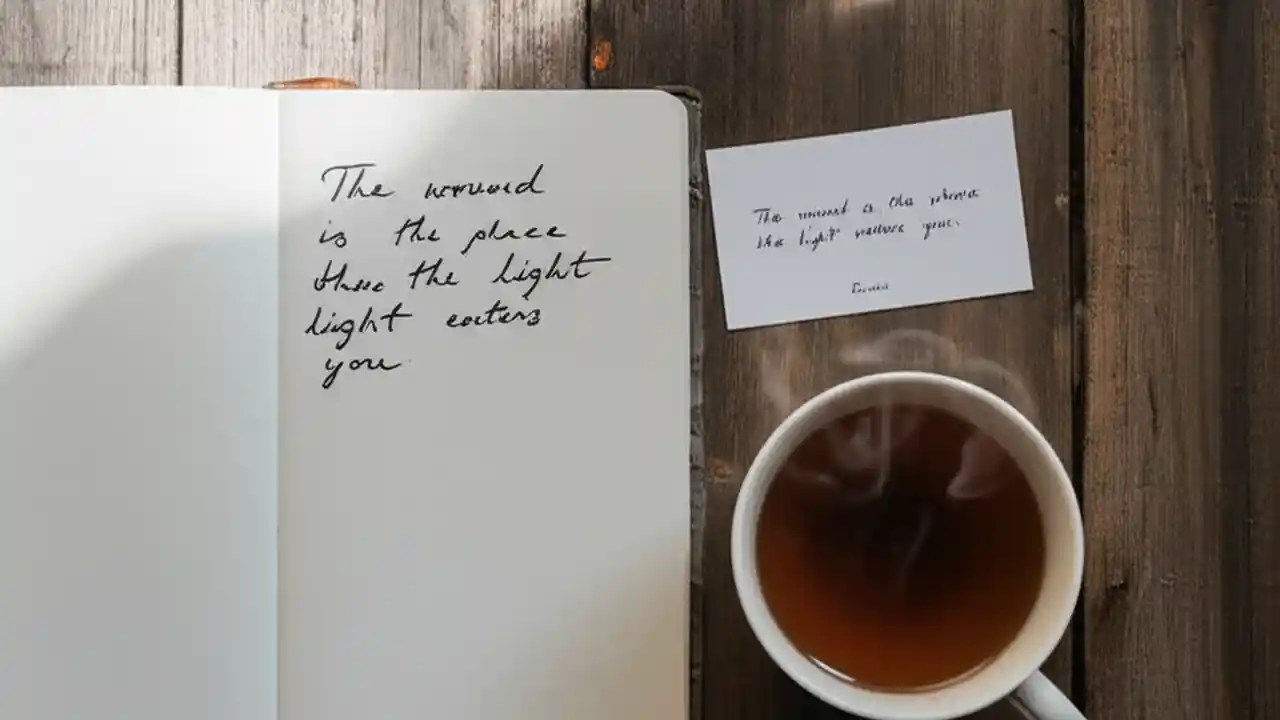 The wound
is the place
the the light
light enters
you
The wound is the where
the light enters you.